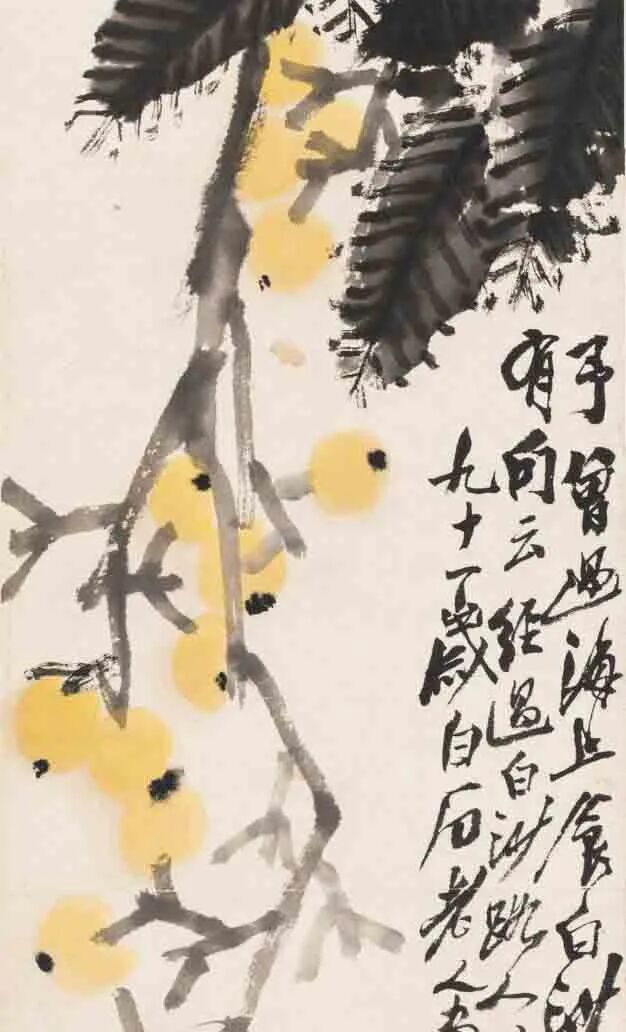 予曾過海上食白沙
有句云經過白沙人
九十一歲白石老人